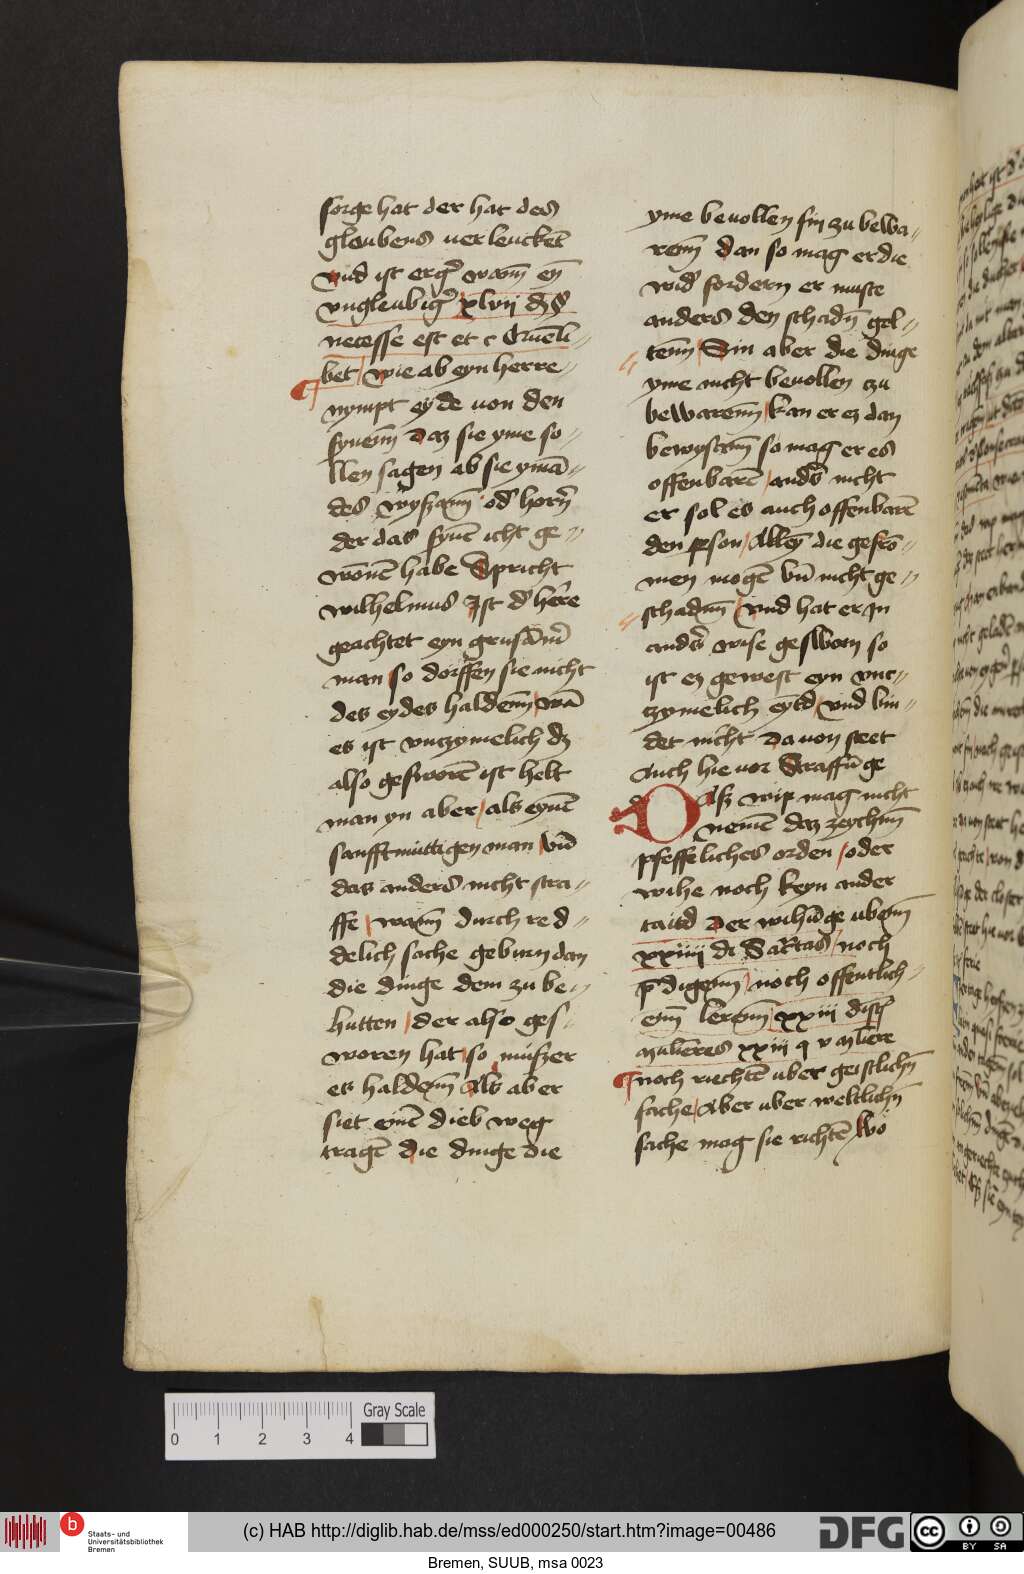 sorge hat der hat des
gleubens uerleucket̄
vnd ist erg̾ wañ eȳ
vngleubig̾ xlvii
necesse est et c Cruēli-
bet wie ab eyn herre-
nympt eyde uon den
synenn daz sie yme so-
llen sagen ab sie ymā-
des wyszenn od̾ horn̄
der das synē icht ge-
wōnē habe Spricht
wilhelmus Ist d̾ her̄e
geachtet eyn grusam̄
man so dorffen sie nicht
des eydes haldenn wā
es ist vnczymelich dz
also gesworē ist helt
man yn aber als eynē
sanfftmuttigen man vn̄
das anders nicht stra-
ffe wann durch red-
delich sache geburn dan
die dinge dem zu be-
hutten der also ges-
woren hat so muszer
es haldenn Als aber
siet einē dieb weg
tragē die dinge die
yme beuollen sin zu bewa-
renn dan so mag er die
wid̾ fordern er muste
anders den schadn̄ gel-
tenn Sin aber die dinge
yme nicht beuollen czu
bewarenn kan er ez dan
bewysenn so mag er es
offenbarē and̾s nicht
er sol es auch offenbarē
den ꝑson Alleȳ die gefro-
men mogē vn̄ nicht ge-
schadenn vnd hat er In
and̾s wise gesworn so
ist ez gewest eyn vnc-
zymelich eytd vnd bin-
det nicht Da uon steet
auch hie uor Straffūge
DAsz wip mag nicht
nemē daz zeychenn
pfeffeliches orden oder
wihe noch keyn ander
taitd der wihūge ubenn
xxiiii di Sacrtas noch
p̄digenn noch offentlich-
enn lerenn xxiii dist̄
mulieres xxiii q v mliere
noch riechtē uber geistlichn̄
sache Aber uber weltlichn̄
sache mag sie richtē wo
0 1 2 3 4
Gray Scale
b Staats- und
Universitätsbibliothek
Bremen
(c) HAB http://diglib.hab.de/mss/ed000250/start.htm?image=00486
DFG
cc BY SA
Bremen, SUUB, msa 0023